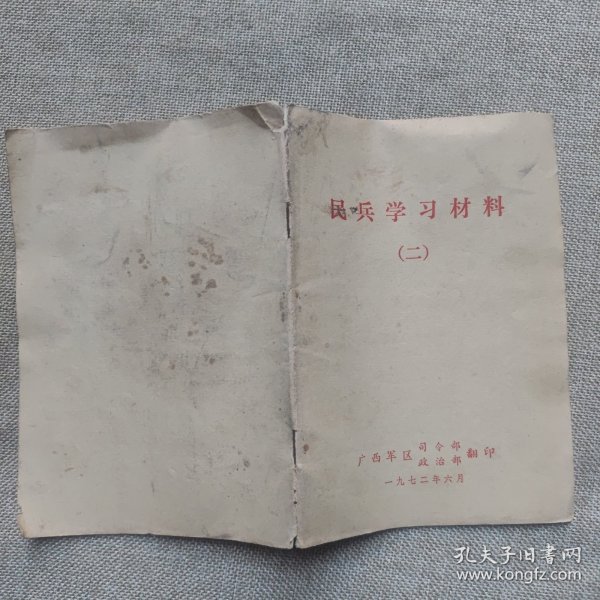 民兵学习材料
(二)
广西军区 司令部 政治部 翻印
一九七二年六月
孔夫子旧书网
www.kongfz.com